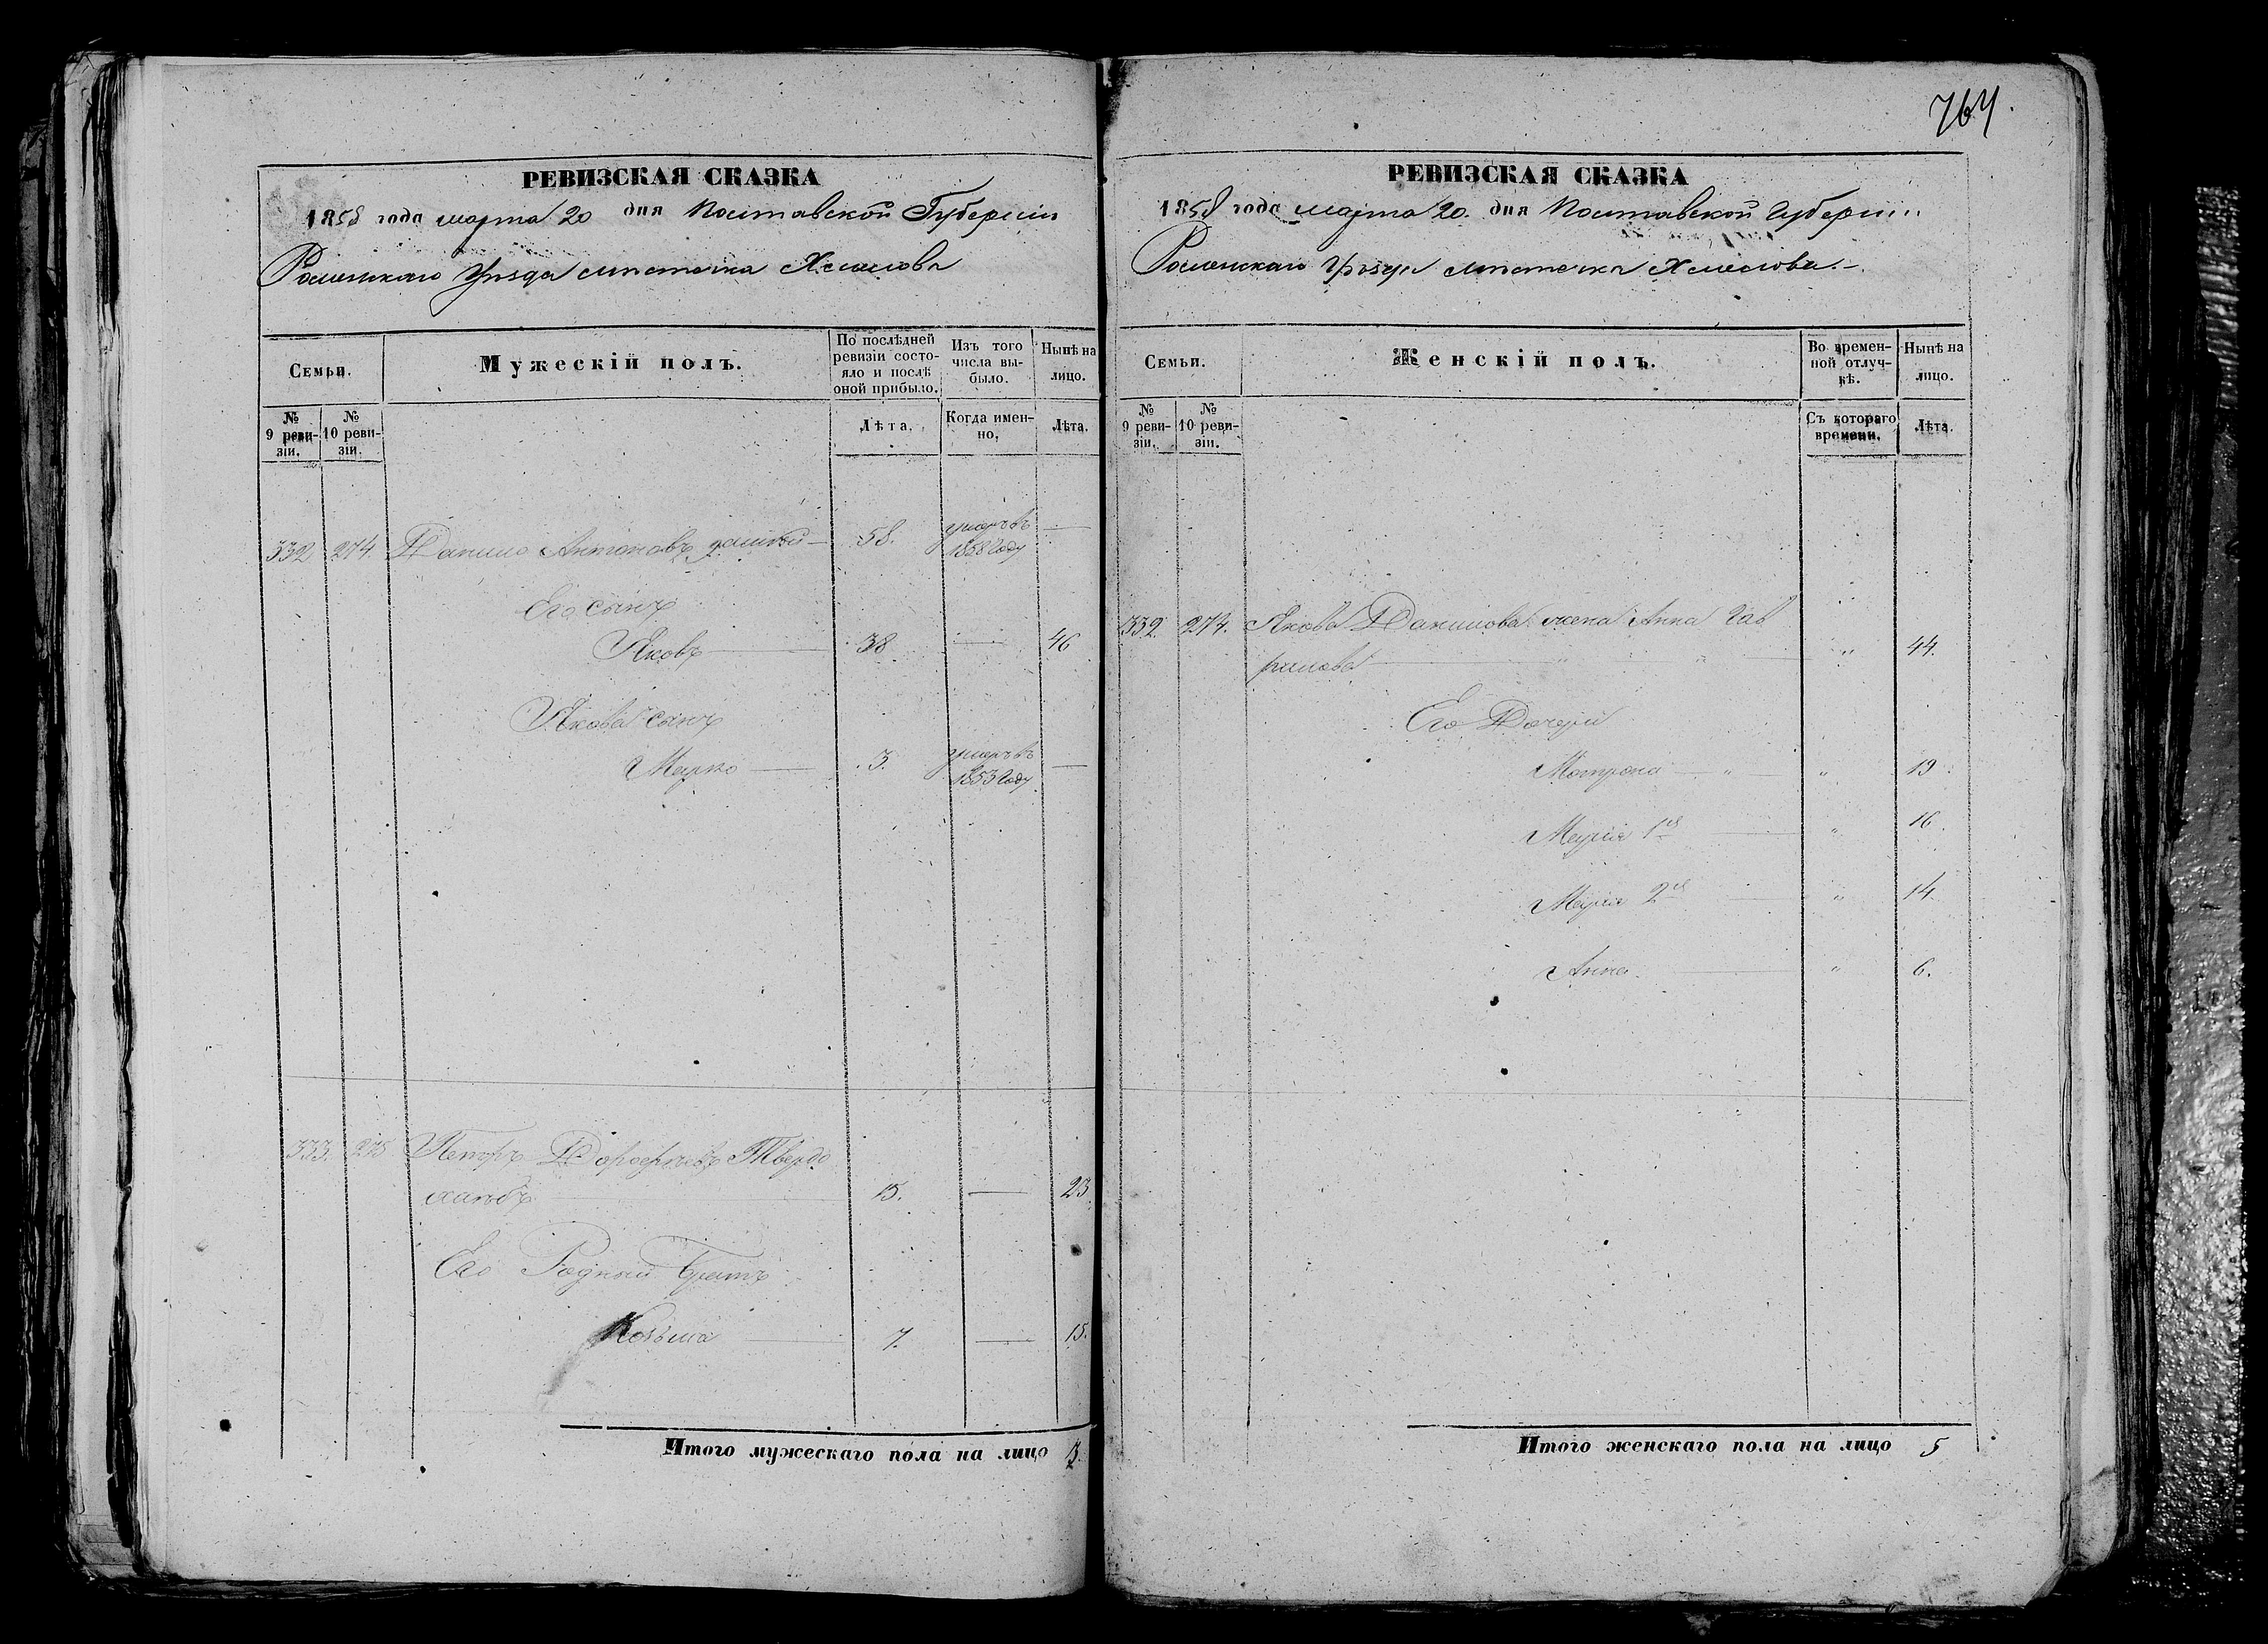 764.
РЕВИЗСКАЯ СКАЗКА
1858 года марта 20 дня Полтавской Губернiи
Роменскаго Уѣзда мѣстечка Хмелова
Семьи.
Мужескій полъ.
По послѣдней
ревизіи состо-
яло и послѣ
оной прибыло.
Изъ того
числа вы-
было.
Нынѣ на
лицо.
№
9 реви-
зіи.
№
10 реви-
зіи.
Лѣта.
Когда имен-
но.
Лѣта.
332 274. Данило Антоновъ 58. умеръ въ
1858 году
Его сынъ
Яковъ 38 46
Якова сынъ
Марко 3. умеръ въ
1853 году
333. 275 Петръ Дорофѣевъ Твердо
хлѣбъ 15. 23.
Его Родный братъ
Козьма 7. 15.
Итого мужескаго пола на лицо 3.
РЕВИЗСКАЯ СКАЗКА
1858 года марта 20. дня Полтавской Губернiи
Роменскаго Уѣзда мѣстечка Хмелова.
Семьи.
Женскій полъ.
Во времен-
ной отлуч-
кѣ.
Нынѣ на
лицо.
№
9 реви-
зіи.
№
10 реви-
зіи.
Съ котораго
времени.
Лѣта.
332. 274. Якова Данилова жена Анна Гав
рилова " 44.
Его Дочери
Мотрона " " 19.
Марія 1я " 16.
Марія 2я " 14.
Анна. " 6.
Итого женскаго пола на лицо 5